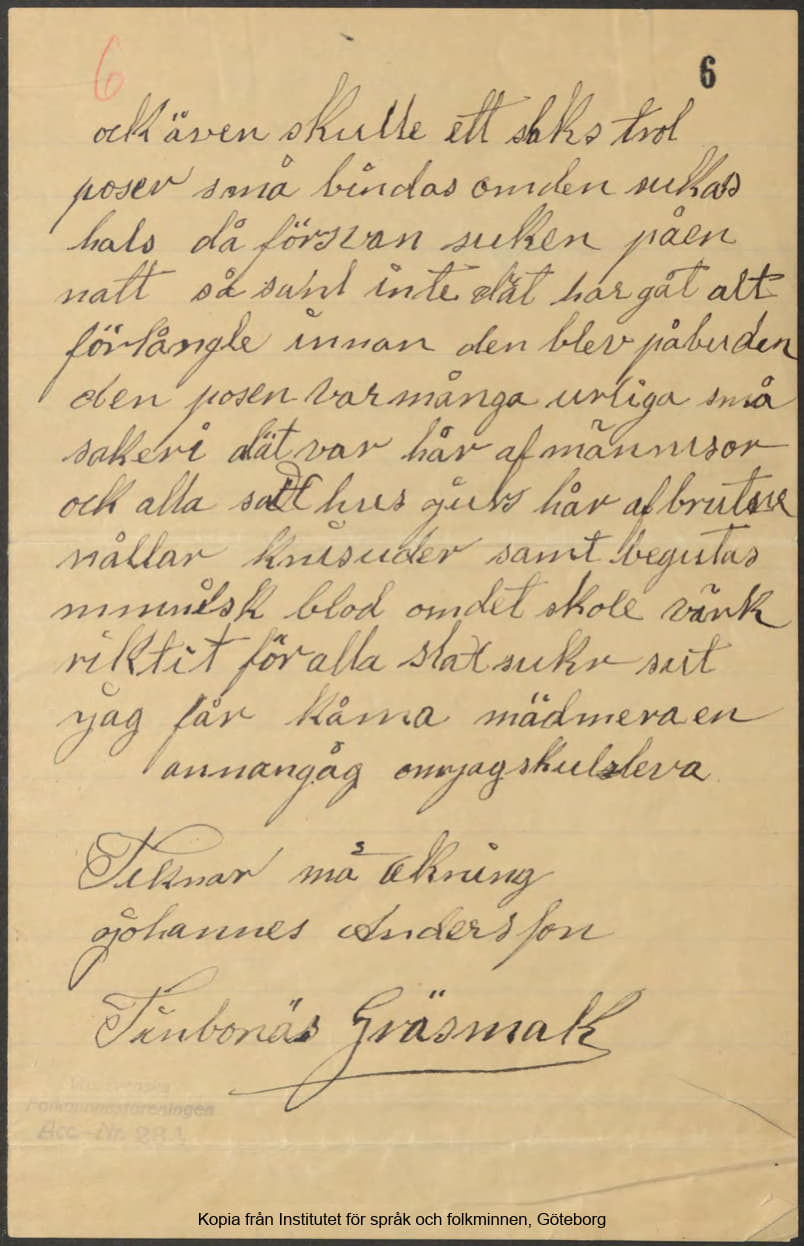 6 6
ock även skulle ett shks trol
poser små bindas omden sukas
hals då försvan suken påen
natt så sant inte dät har gåt alt
förlångle innan den blev påbuden
den posen var många urliga små
sakeri dät var hår af männisor
ock alla satt hus jurs hår afbrutne
nållar knisuder samt begutas
blod omdet skole värk
riktit för alla slax sukr sut
jag får kåma mädmera en
annangåg omjagskulsleva
Tiknar må s akning
johannes Andersson
Tinbonäs Gräsmak
Folkminnesföreningen
Kopia från Institutet för språk och folkminnen, Göteborg